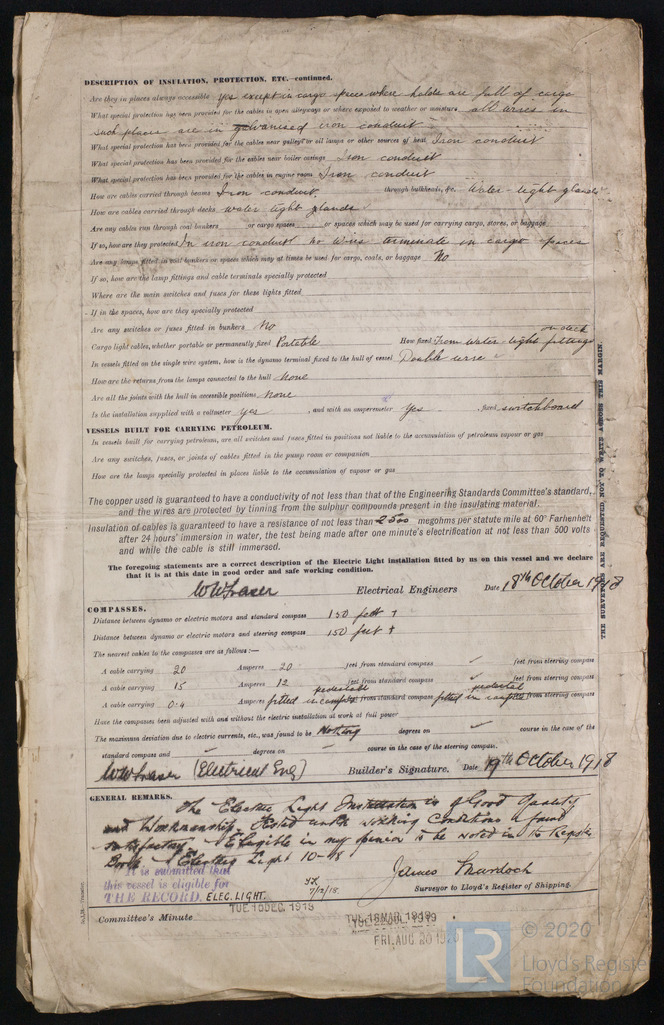 DESCRIPTION OF INSULATION, PROTECTION, ETC.—continued.
Are they in places always accessible yes except in cargo space where holds are full of cargo
What special protection has been provided for the cables in open alleyways or where exposed to weather or moisture all wires in
such places are in galvanised iron conduit
What special protection has been provided for the cables near galleys or oil lamps or other sources of heat Iron conduit
What special protection has been provided for the cables near boiler casings Iron conduit
What special protection has been provided for the cables in engine room Iron conduit
How are cables carried through beams Iron conduit. through bulkheads, &c. Water-tight glands
How are cables carried through decks water tight glands
Are any cables run through coal bunkers or cargo spaces or spaces which may be used for carrying cargo, stores, or baggage
If so, how are they protected In iron conduit no wires terminate in cargo spaces
Are any lamps fitted in coal bunkers or spaces which may at times be used for cargo, coals, or baggage No
If so, how are the lamp fittings and cable terminals specially protected
Where are the main switches and fuses for these lights fitted
If in the spaces, how are they specially protected
Are any switches or fuses fitted in bunkers No
Cargo light cables, whether portable or permanently fixed Portable How fixed From water-tight fittings on deck
In vessels fitted on the single wire system, how is the dynamo terminal fixed to the hull of vessel Double wire
How are the returns from the lamps connected to the hull None
Are all the joints with the hull in accessible positions None
Is the installation supplied with a voltmeter yes , and with an amperemeter yes , fixed switchboard
VESSELS BUILT FOR CARRYING PETROLEUM.
In vessels built for carrying petroleum, are all switches and fuses fitted in positions not liable to the accumulation of petroleum vapour or gas
Are any switches, fuses, or joints of cables fitted in the pump room or companion
How are the lamps specially protected in places liable to the accumulation of vapour or gas
The copper used is guaranteed to have a conductivity of not less than that of the Engineering Standards Committee's standard,
and the wires are protected by tinning from the sulphur compounds present in the insulating material.
Insulation of cables is guaranteed to have a resistance of not less than 2500 megohms per statute mile at 60° Farhenheit
after 24 hours' immersion in water, the test being made after one minute's electrification at not less than 500 volts
and while the cable is still immersed.
The foregoing statements are a correct description of the Electric Light installation fitted by us on this vessel and we declare
that it is at this date in good order and safe working condition.
W W Fraser Electrical Engineers Date 18th October 1918
COMPASSES.
Distance between dynamo or electric motors and standard compass 150 feet
Distance between dynamo or electric motors and steering compass 150 feet
The nearest cables to the compasses are as follows:—
A cable carrying 20 Amperes 20 feet from standard compass ✓ feet from steering compass
A cable carrying 15 Amperes 12 feet from standard compass ✓ feet from steering compass
A cable carrying 0.4 Amperes fitted in compass pedestal feet from standard compass fitted in compass pedestal feet from steering compass
Have the compasses been adjusted with and without the electric installation at work at full power
The maximum deviation due to electric currents, etc., was found to be Nothing degrees on ✓ course in the case of the
standard compass and ✓ degrees on ✓ course in the case of the steering compass.
W W Fraser (Electrical Eng) Builder's Signature. Date 19th October 1918
GENERAL REMARKS.
The Electric Light Installation is of Good Quality
and Workmanship, Tested under working Conditions & found
satisfactory. Eligible in my opinion to be noted in the Register
Book Electric Light 10-18
It is submitted that
this vessel is eligible for
THE RECORD. ELEC. LIGHT. 7/12/18.
James Murdoch
Surveyor to Lloyd's Register of Shipping.
Committee's Minute TUE 10 DEC. 1918
TUE. 18 MAR. 1919
FRI. AUG 20 1920
THE SURVEYORS ARE REQUESTED NOT TO WRITE ACROSS THIS MARGIN.
LR © 2020
Lloyd's Register
Foundation